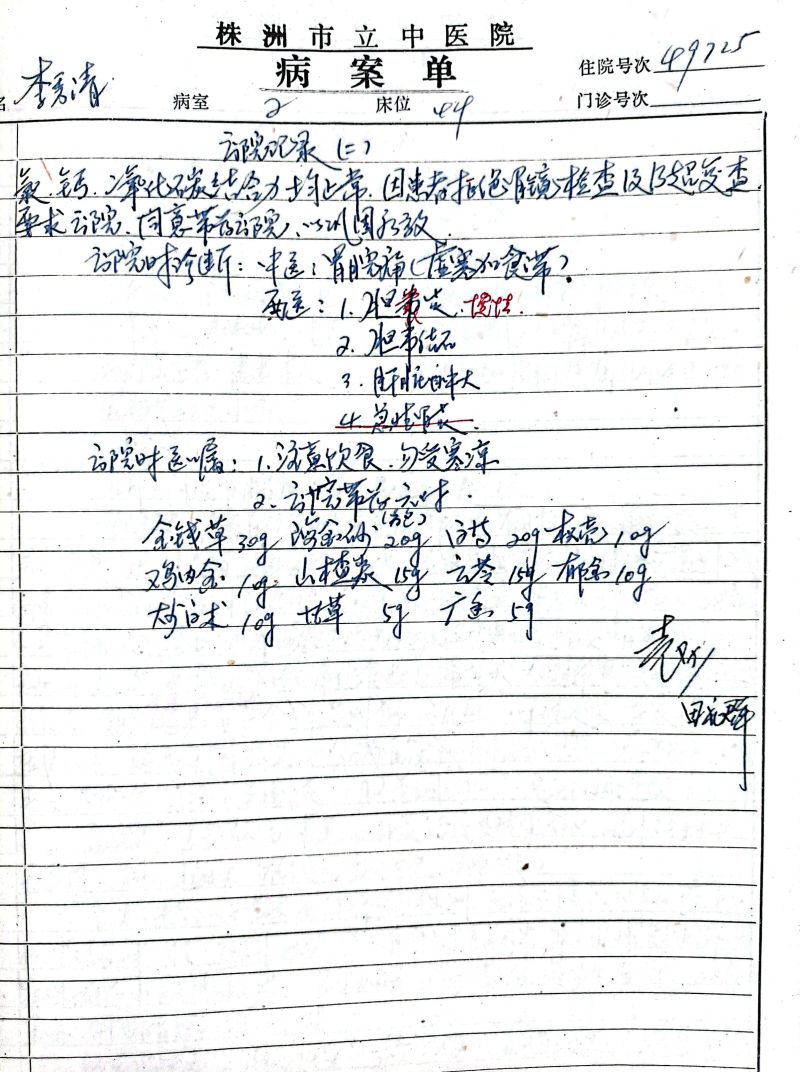 株洲市立中医院
病案单
住院号次 49725
名 李 清 病室 2 床位 44 门诊号次
出院记录(二)
氯、钙、二氧化碳结合力均正常,因患者拒绝胃镜检查及B超复查,
要求出院,同意带药出院,以巩固疗效.
出院时诊断:中医:胃脘痛(虚寒加食滞).
西医:1.胆囊炎.慢性.
2.胆囊结石
3.肝脏肿大
4.急性胃炎.
出院时医嘱:1.注意饮食,勿受寒凉
2.出院带药六付.
金钱草30g 海金砂(另包)20g 20g 枳壳10g
鸡内金10g 山楂炭15g 云苓15g 郁金10g
炒白术10g 甘草5g 广 5g
袁
田